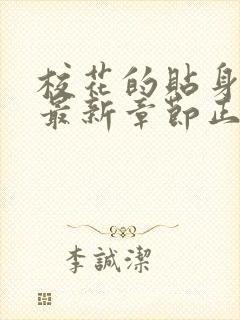 校花的貼身
最新章節正
李誠潔